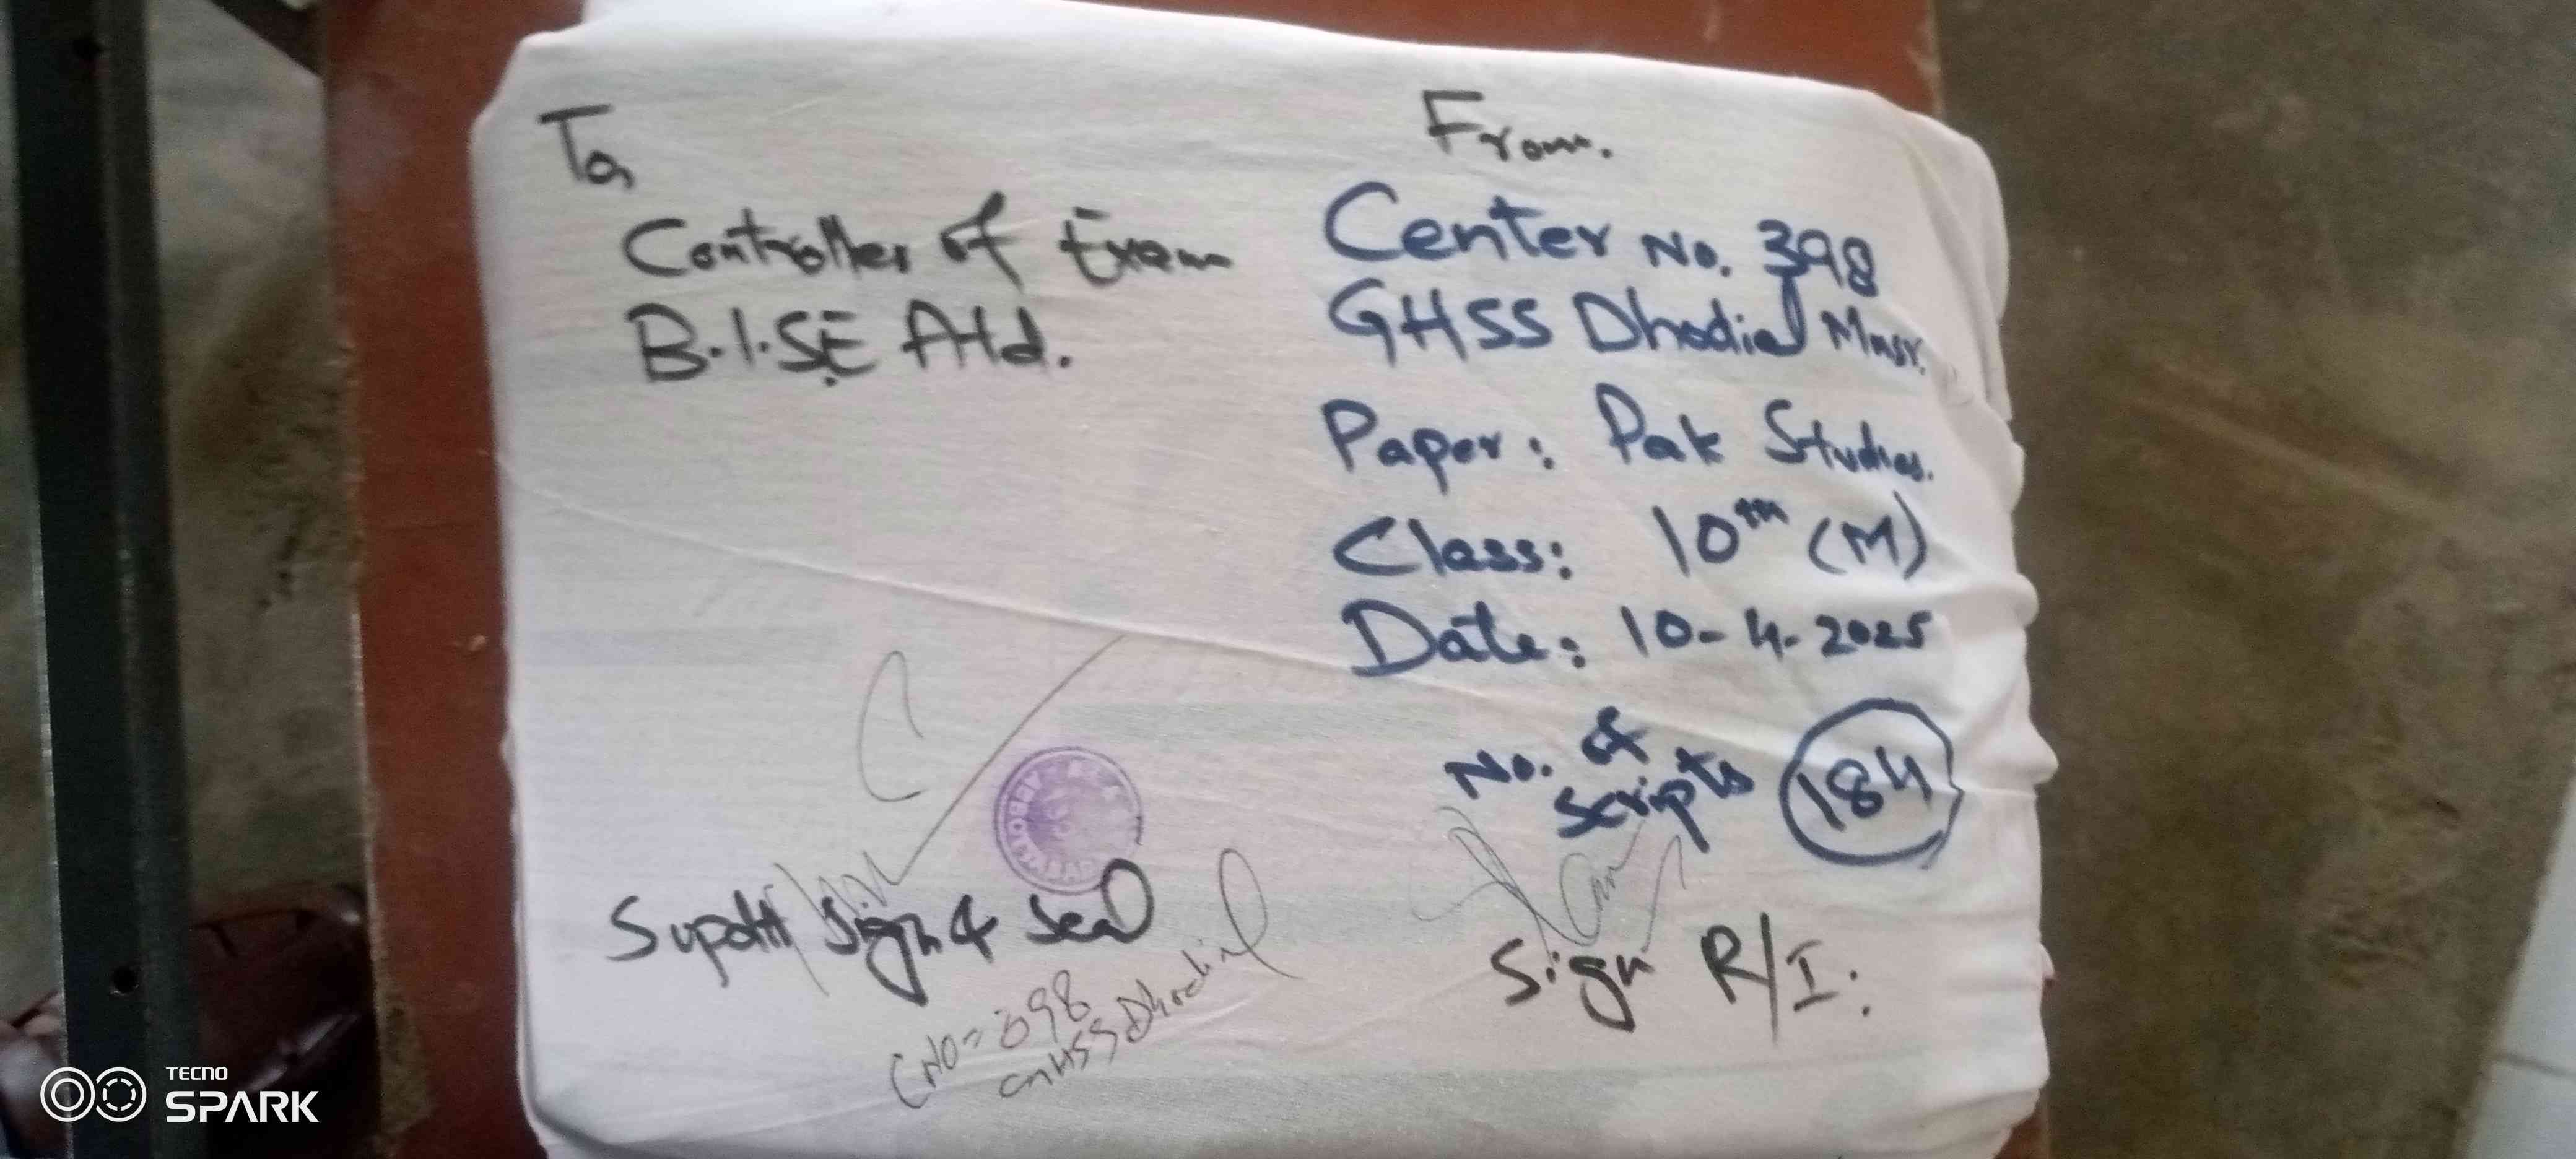 To,
Controller of Exam
B.I.SE Atd.
From.
Center No. 398
GHSS Dhodial Masr.
Paper: Pak Studies.
Class: 10th (M)
Date: 10-4-2025
No. of
Scripts 184
Supdtt Sign & Seal
CNO = 398
GHSS Dhodial
Sign R/I:
TECNO
SPARK